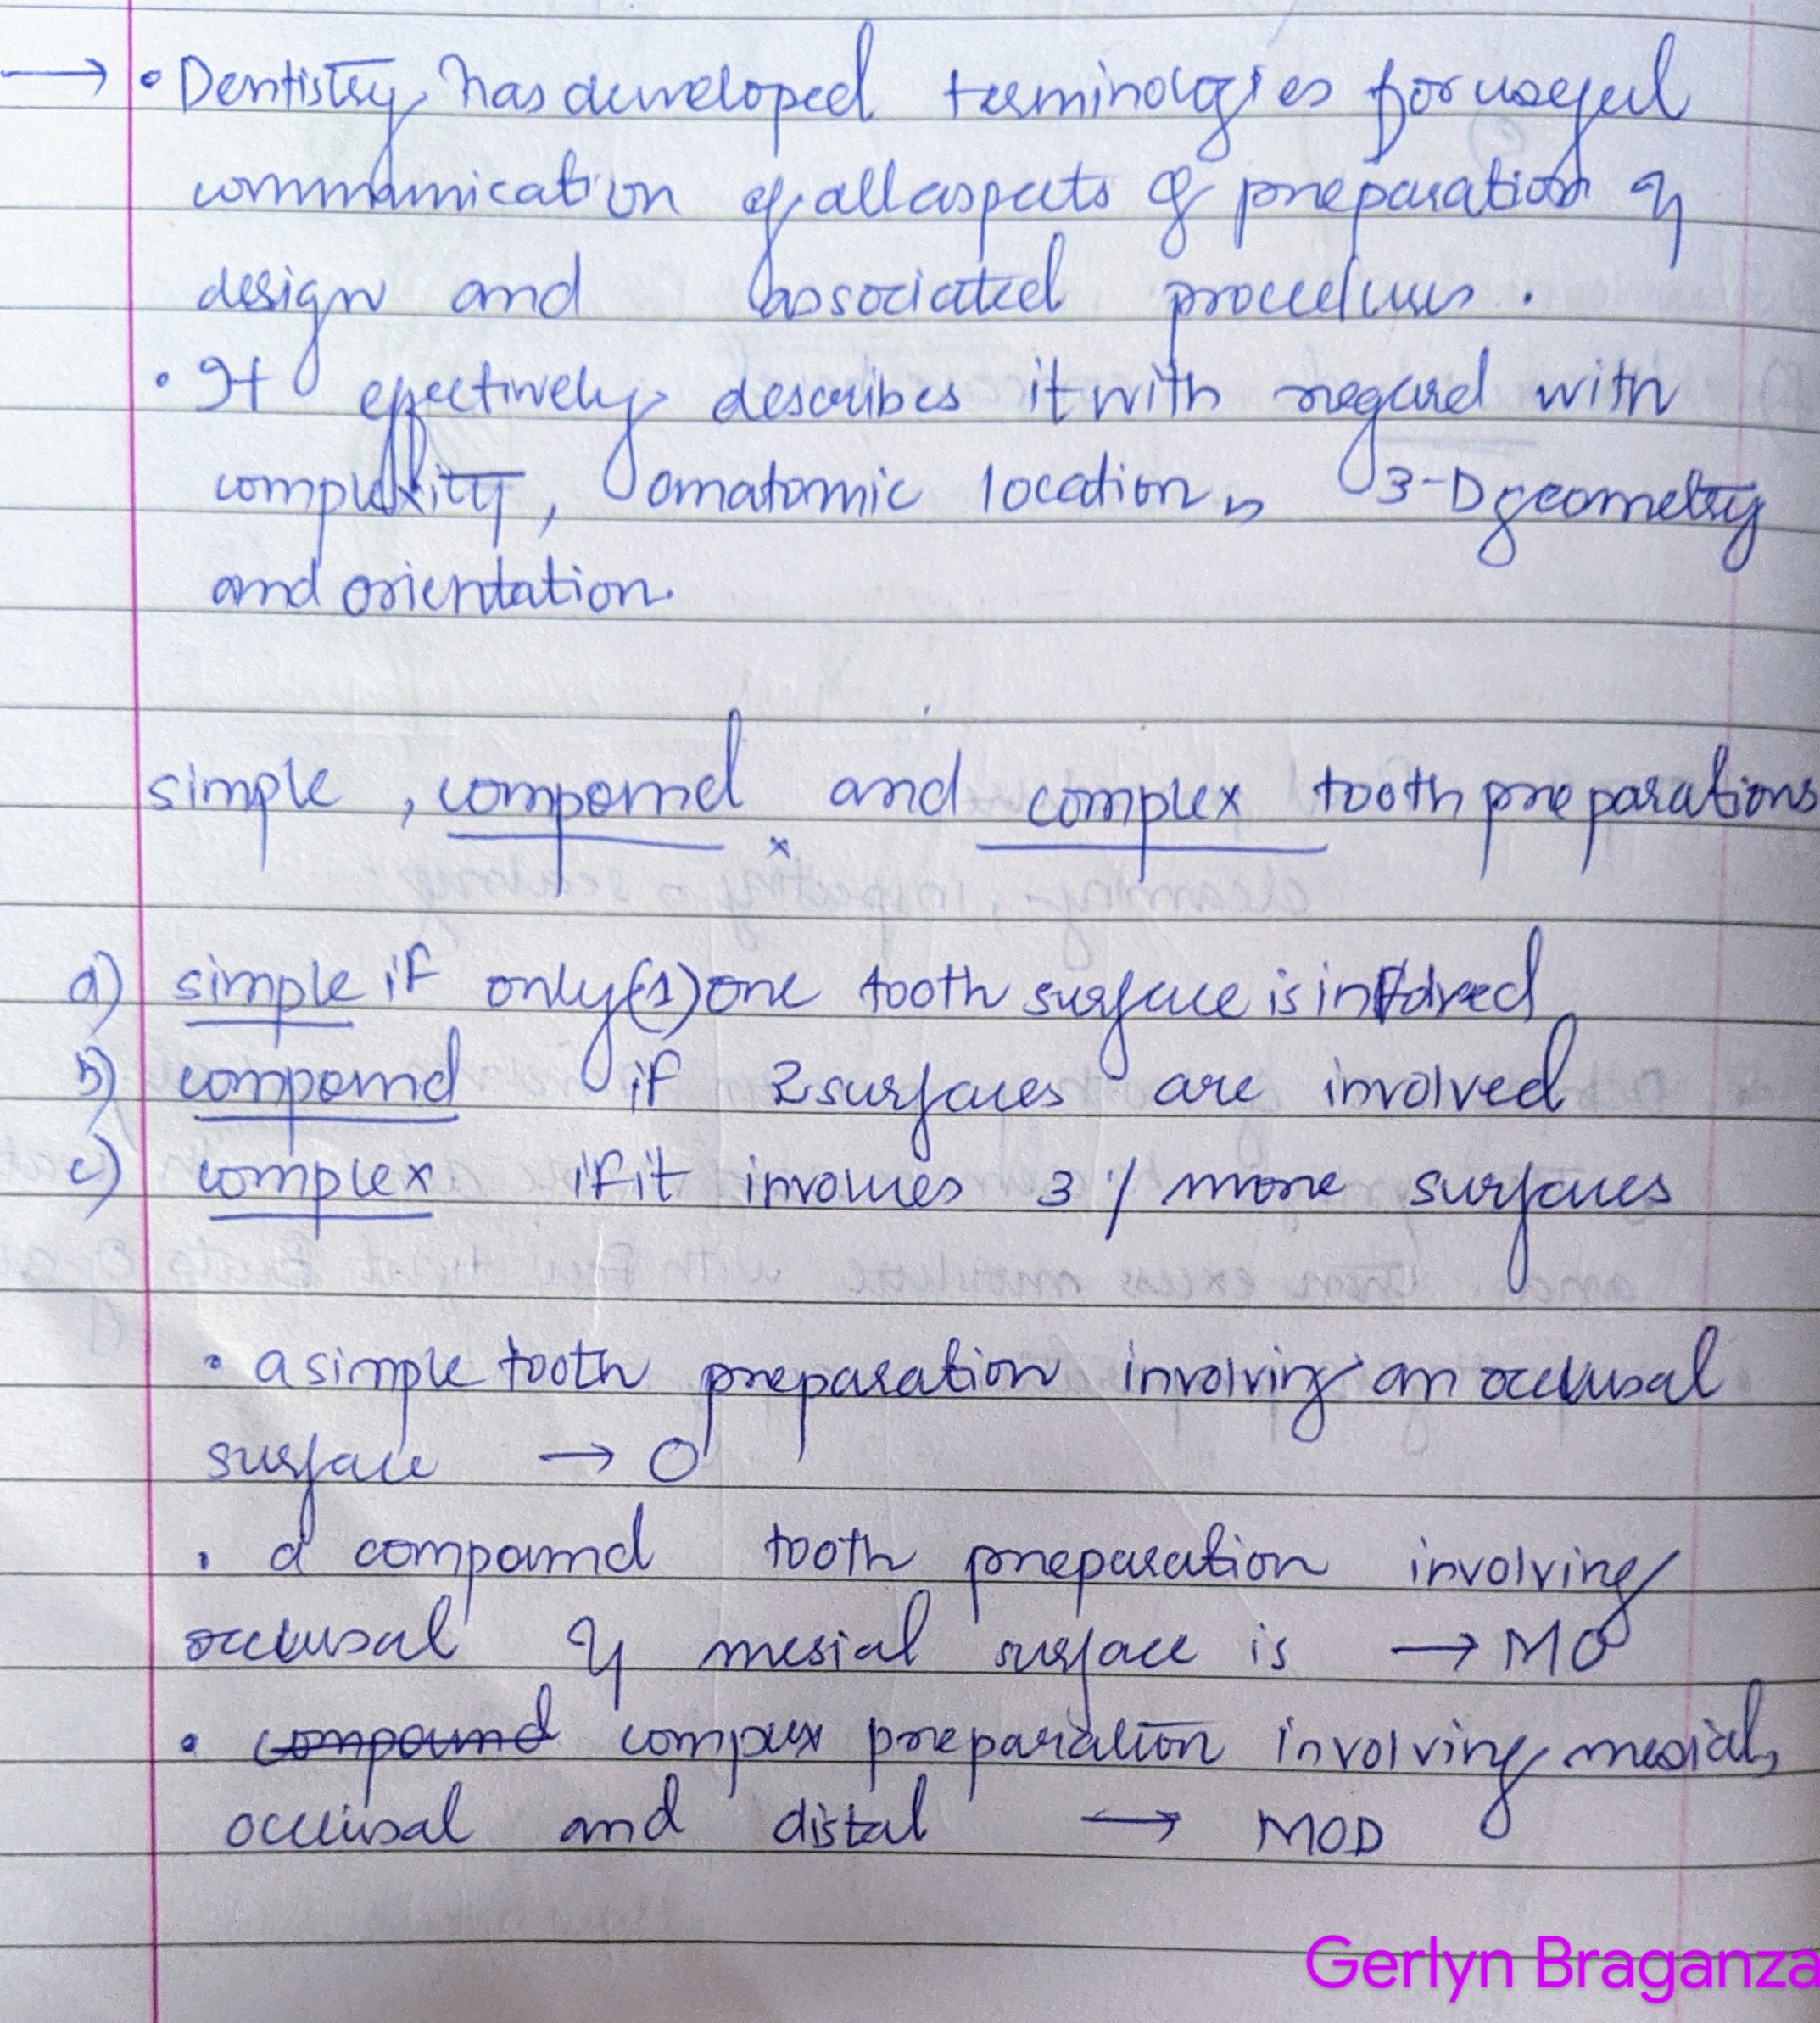 → • Dentistry has developed terminologies for useful
communication of all aspects of preparation &
design and associated procedures.
• It effectively describes it with regard with
complexity, anatomic location, 3-D geometry
and orientation.
simple, compound and complex tooth preparations
a) simple if only (1) one tooth surface is involved
b) compound if 2 surfaces are involved
c) complex if it involves 3 / more surfaces
• a simple tooth preparation involving an occlusal
surface → O
• a compound tooth preparation involving
occlusal & mesial surface is → MO
• compound complex preparation involving mesial,
occlusal and distal → MOD
Gerlyn Braganza